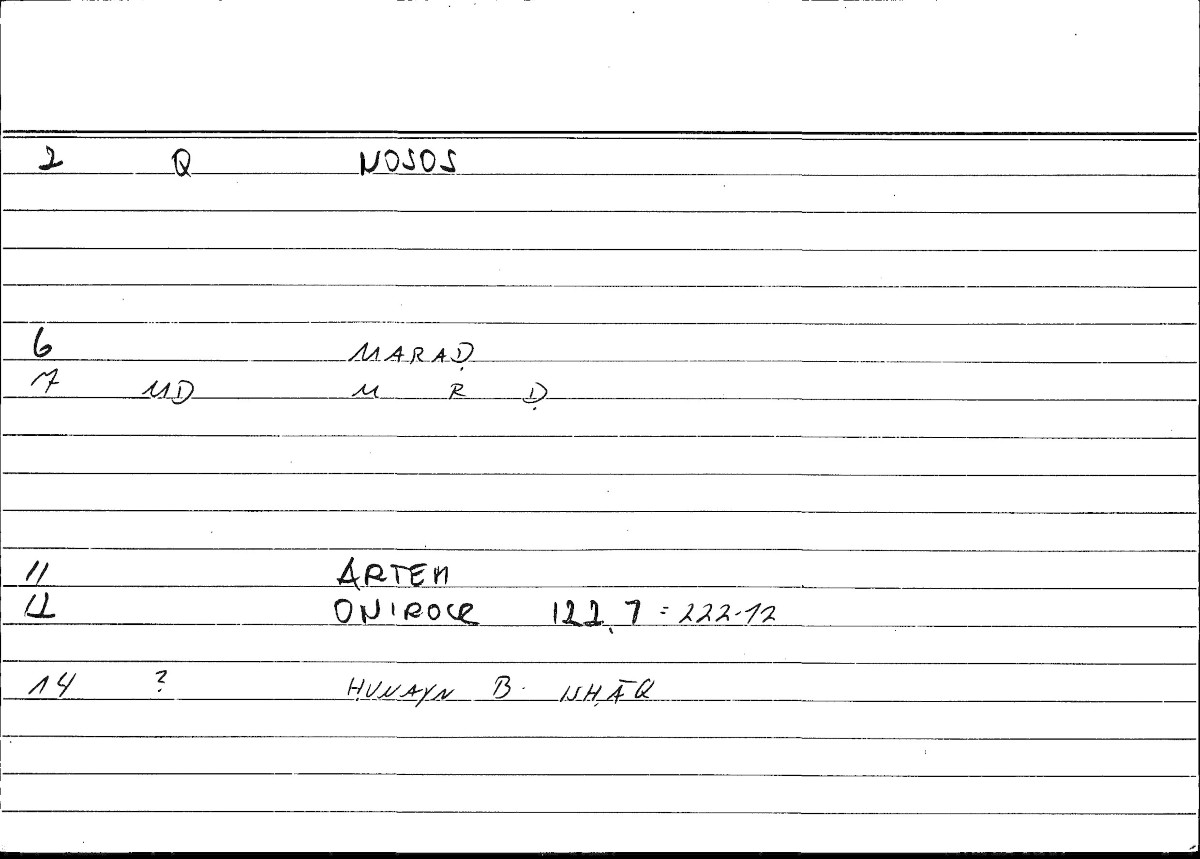 2 Q NOSOS
6 MARAḌ
7 MD M R Ḍ
11 ARTEM
12 ONIROCR 122,7 = 222-12
14 ? ḤUNAYN B. ISḤĀQ